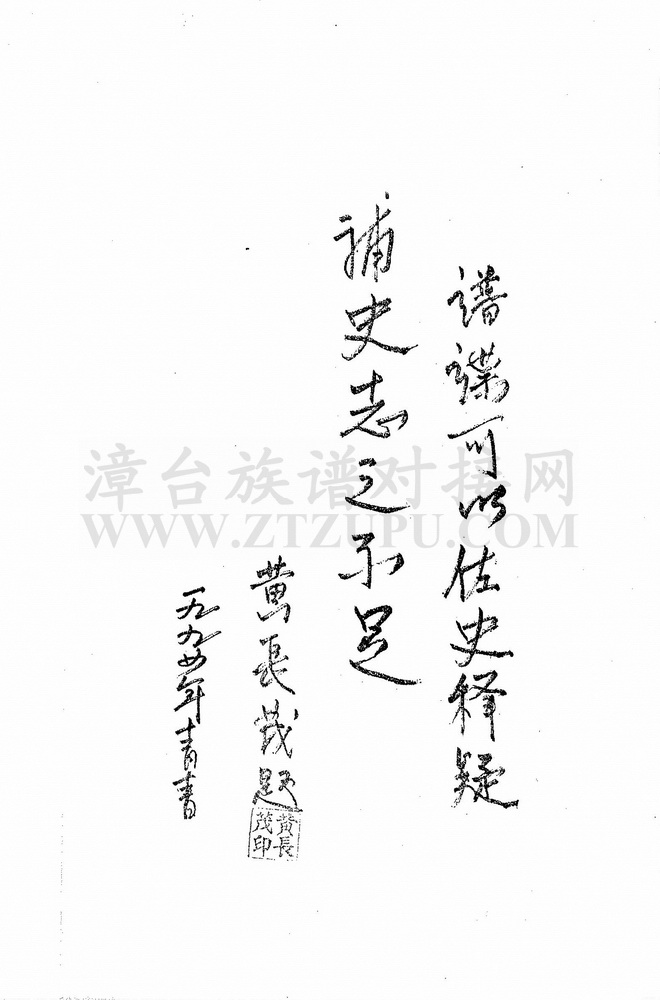 谱谍可以佐史释疑
补史志之不足
黄长茂题
黄長茂印
一九九四年青春
漳台族谱对接网
WWW.ZTZUPU.COM